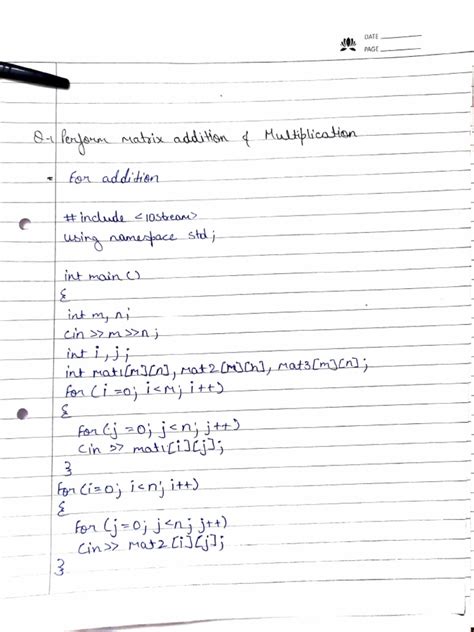 DATE
PAGE
Q-1 Perform matrix addition & Multiplication
For addition
# include <iostream>
using namespace std;
int main ()
{
int m, n;
Cin >> m >> n;
int i, j;
int mat1[m][n], mat2[m][n], mat3[m][n];
for (i =0; i<m; i++)
{
for (j =0; j<n; j++)
Cin >> mat1[i][j];
}
for (i=0; i<n; i++)
{
for (j=0; j<n; j++)
Cin>> mat2 [i][j];
}